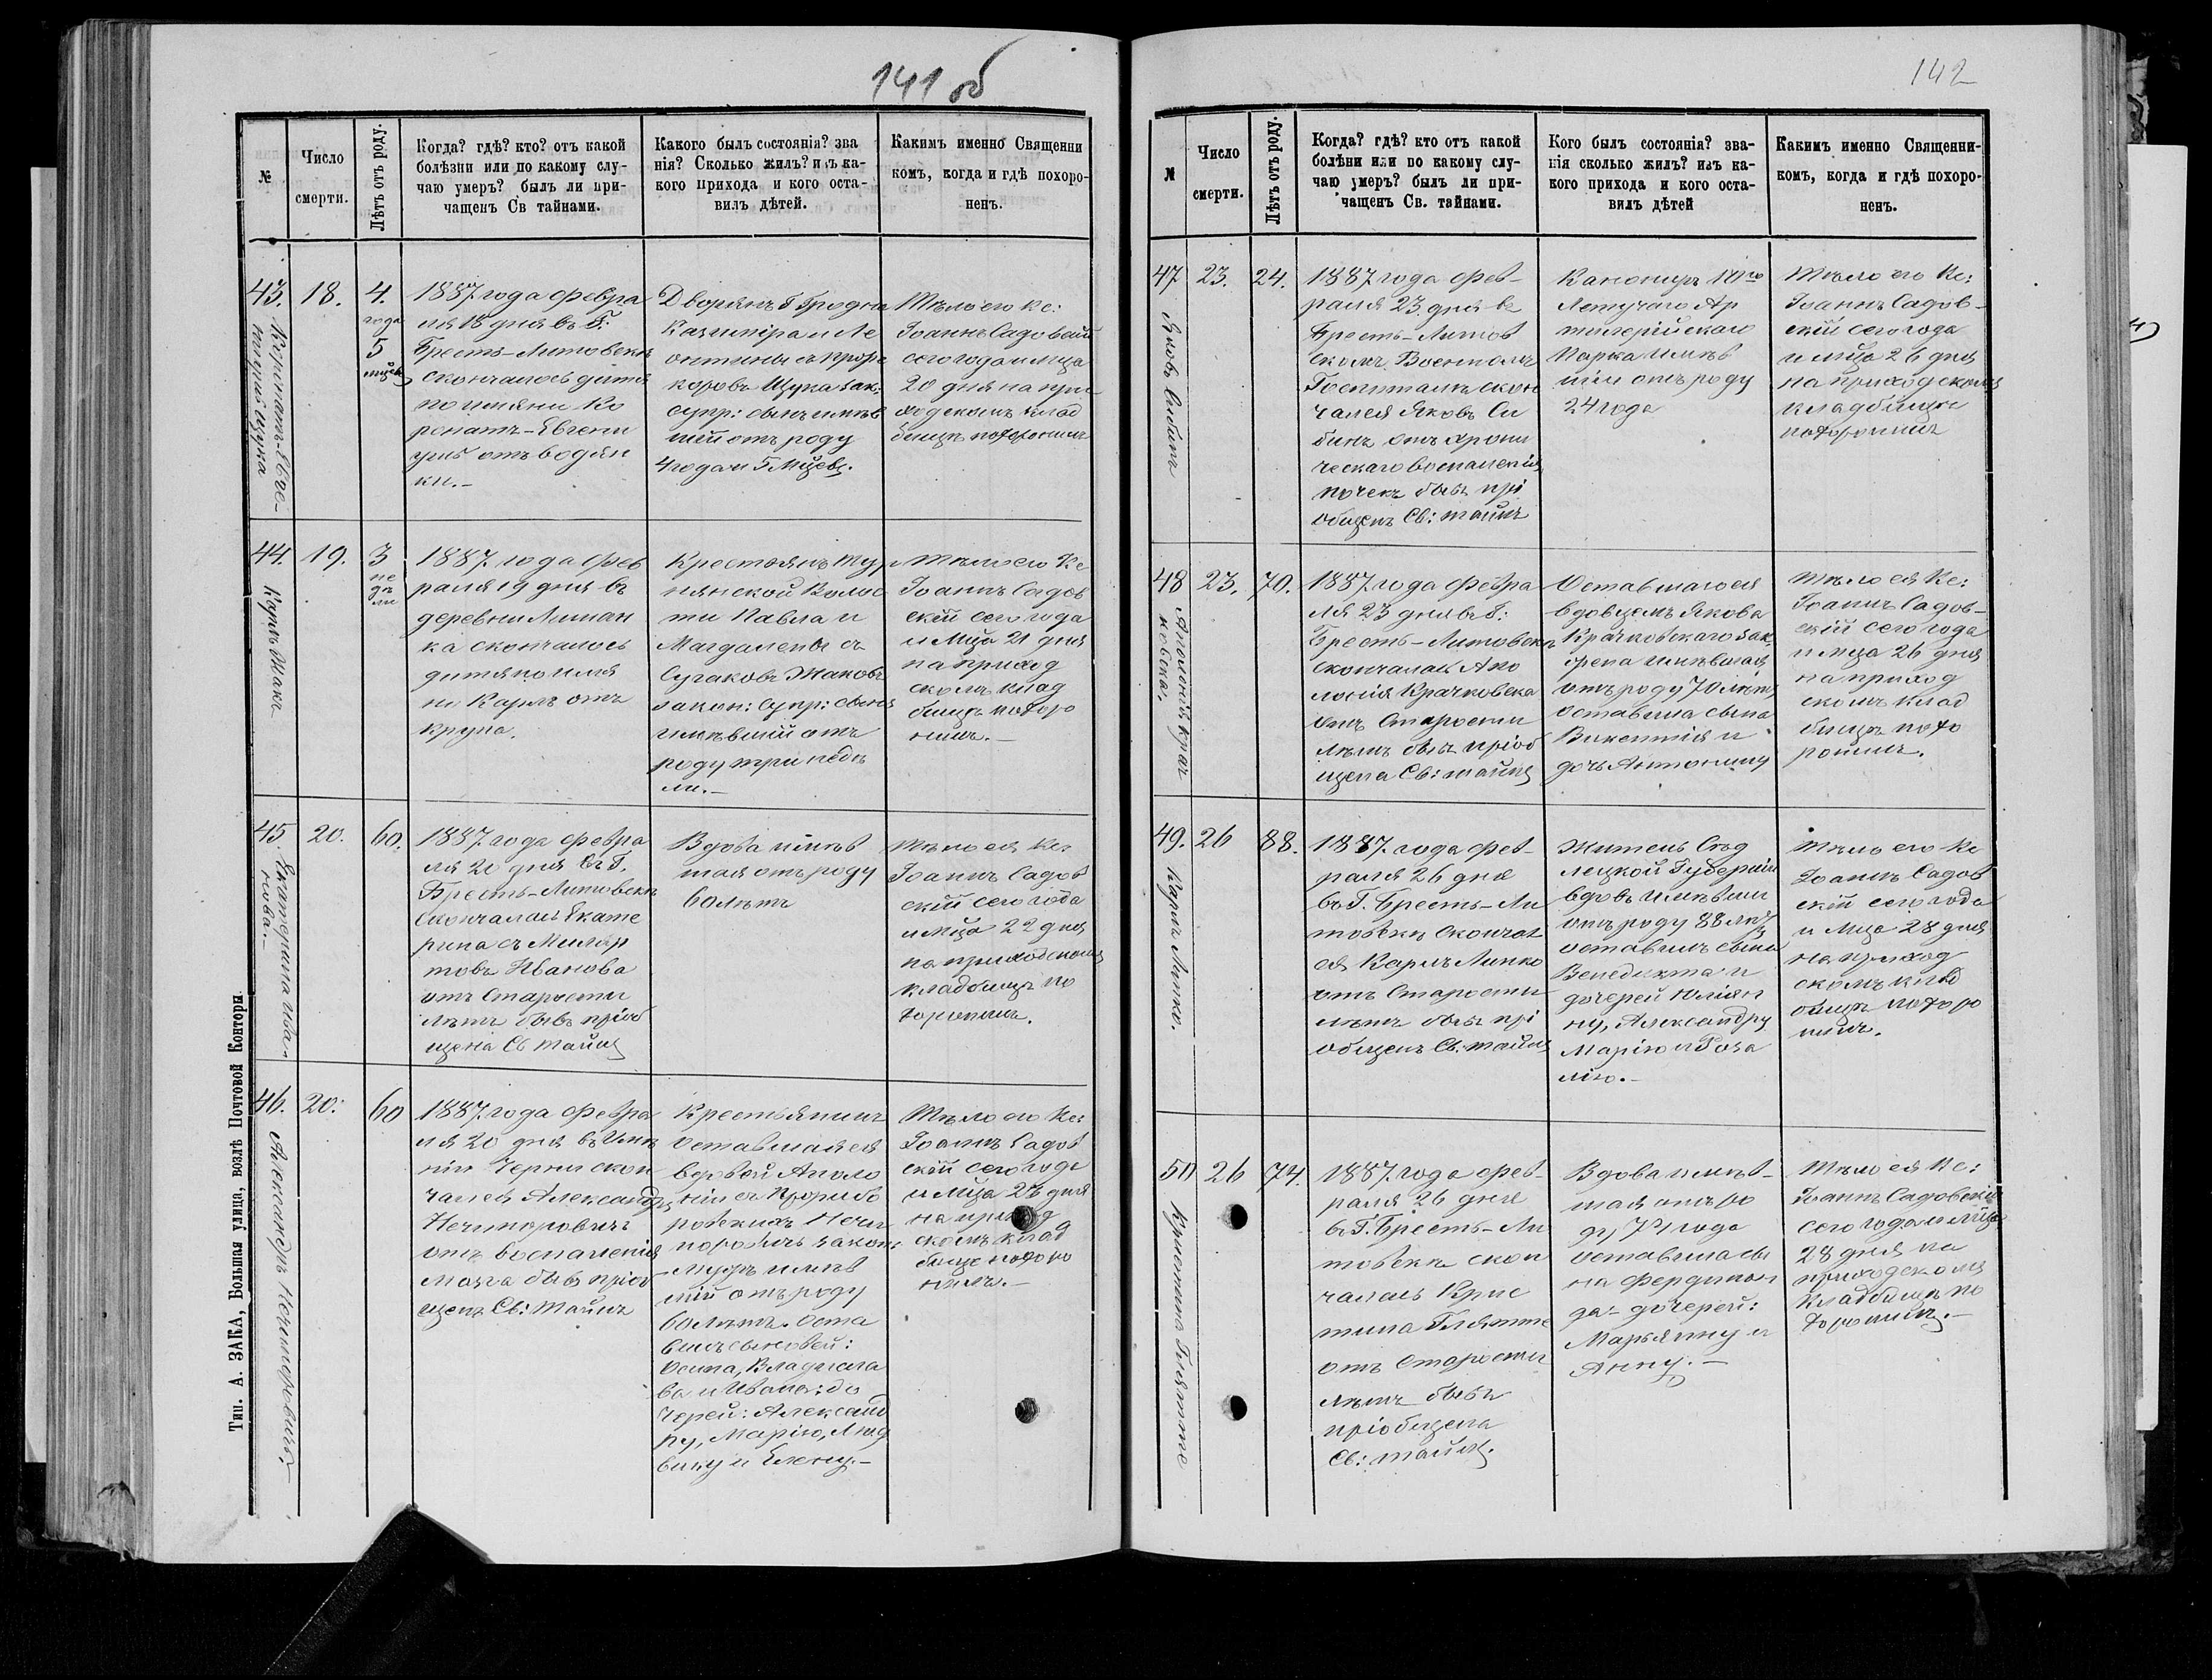 141 об
№
Число
смерти.
Лѣтъ отъ роду.
Когда? гдѣ? кто? отъ какой
болѣзни или по какому слу-
чаю умеръ? былъ ли при-
чащенъ Св тайнами.
Какого былъ состоянія? зва
нія? Сколько жилъ? изъ ка-
кого прихода и кого оста-
вилъ дѣтей.
Какимъ именно Священни
комъ, когда и гдѣ похоро-
ненъ.
43.
18.
4.
года
5
1887 года Февра
ля 18 дня въ Г.
Брестъ-Литовскѣ
скончалось дитя
по имяни Ко
ренатъ-Евгени
ушъ отъ водян
ки.-
Дворянъ Г Гродна
Казиміра и Ле
онтины съ
Щука зак:
супр: сынъ имѣв
шій отъ роду
4 года и 5 Мцевъ.
Тѣло его Кс:
Іоаннъ Садовскій
сего года и Мца
20 дня на при
ходскомъ клад
бищѣ похоронилъ
44.
Карлъ Жакъ
19.
3
не
дѣ
ли
1887. года Фев
раля 19 дня въ
деревни Лиман
ка скончалось
дитя по имя
ни Карлъ отъ
крупа.
Крестьянъ Тур
нянской Волос
ти Павла и
Магдалены съ
Сугаковъ Жаковъ
закон: Супр: сынъ
имѣвшій отъ
роду три недѣ
ли.-
Тѣло его Кс
Іоаннъ Садов
скій сего года
и Мца 21 дня
на приход
скомъ клад
бищѣ похоро
нилъ.-
45.
Екатерина Ива-
нова.-
20.
60.
1887. года Февра
ля 20 дня въ Г.
Брестъ-Литовскѣ
Скончалась Екате
рина съ Милар
товъ Иванова
отъ Старости
лѣтъ бывъ пріоб
щена Св Тайнъ
Вдова имѣв
шая отъ роду
60 лѣтъ
Тѣло ея Кс:
Іоаннъ Садов
скій сего года
и Мца 22 дня
на приходскомъ
кладбищѣ по
хоронилъ.
46.
Александръ Нечипоровичъ
20.
60
1887. года Февра
ля 20 дня въ Имѣ
ніи Черни скон
чался Александръ
Нечипоровичъ
отъ воспаленія
мозга бывъ пріоб
щенъ Св: Тайнъ
Крестьянинъ
Оставшаяся
вдовой Аполо
ніи съ
Нечи
поровичъ закон:
мужъ имѣв
шій отъ роду
60 лѣтъ. Оста
вилъ сыновей:
Осипа, Владисла
ва и Ивана: до
черей: Александ
ру, Марію, Люд
вику и Елену.-
Тѣло его Кс:
Іоаннъ Садов
скій сего года
и Мца 23 дня
на приход
скомъ клад
бище похоро
нилъ.-
Тип. А. ЗАКА, Большая улица, возлѣ Почтовой Конторы.
142
№
Число
смерти.
Лѣтъ отъ роду.
Когда? гдѣ? кто отъ какой
болѣзни или по какому слу-
чаю умеръ? былъ ли при-
чащенъ Св. тайнами.
Кого былъ состоянія? зва-
нія сколько жилъ? изъ ка-
кого прихода и кого оста-
вилъ дѣтей
Какимъ именно Священни-
комъ, когда и гдѣ похоро-
ненъ.
47
Яковъ Сибинъ
23.
24.
1887 года Фев-
раля 23 дня въ
Брестъ-Литов
скомъ Военномъ
Госпиталѣ скон
чался Яковъ Си
бинъ отъ хрони
ческаго воспаленія
почекъ бывъ прі
общенъ Св: тайнъ
Канониръ 10го
Летучаго Ар
тилерійскаго
Парка имѣв
шій отъ роду
24 года
Тѣло его Кс:
Іоаннъ Садов-
скій сего года
и мца 26 дня
на приходскомъ
кладбищѣ
похоронилъ
48
Аполонія Крач
ковска.
23.
70.
1887. года Февра
ля 23 дня въ Г:
Брестъ-Литовскѣ
скончалась Апо
лонія Крачковска
отъ Старости
лѣтъ бывъ пріоб
щена Св: тайнъ
Оставшагося
вдовцемъ Якова
Крачковскаго зак.
жена имѣвшая
отъ роду 70 лѣтъ
оставила сына
Викентія и
дочь Антонину
Тѣло ея Кс:
Іоаннъ Садов-
скій сего года
и мца 26 дня
на приход
скомъ клад
бищѣ похо
ронилъ.
49.
Карлъ Липко.
26
88.
1887. года Фев-
раля 26 дня
въ Г. Брестъ-Ли
товскѣ Скончал
ся Карлъ Липко
отъ Старости
лѣтъ бывъ прі
общенъ Св. тайнъ
Житель Сѣд
лецкой Губерніи
вдовъ имѣвши
отъ роду 88 лѣтъ
оставилъ сына
Венедикта и
дочерей Юліян
ну, Александру
Марію и Роза
лію.-
Тѣло его Кс
Іоаннъ Садов
скій сего года
и Мца 28 дня
на приход
скомъ клад
бищѣ похоро
нилъ.
50
Кристина Глятте
26
74.
1887. года Фев-
раля 26 дня
въ Г. Брестъ-Ли
товскѣ скон
чалась Крис
тина Глятте
отъ Старости
лѣтъ бывъ
пріобщена
Св: тайнъ.
Вдова имѣв-
шая отъ ро
ду 74 года
Оставила сы
на Фердинан
да- дочерей:
Марьянну и
Анну.-
Тѣло ея Кс:
Іоаннъ Садовскій
сего года и Мца
28 дня на
приходскомъ
кладбищѣ по
хоронилъ.-